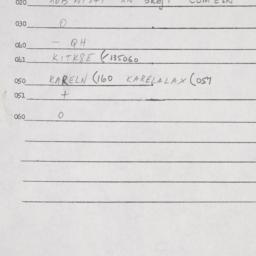 020
030 0
040 - QH
041 KITK8E (135060
050 KARELN (160 KARELALAX (057
051 +
060 0